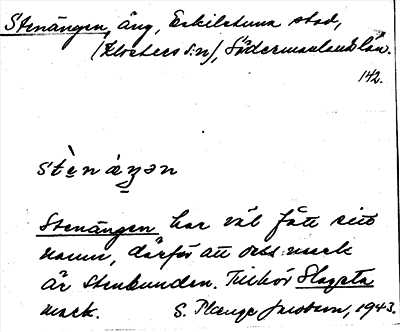 Stenängen, äng, Eskilstuna stad,
(Klosters s:n), Södermanlands län.
142.
stènáŋən
Stenängen har väl fått sitt
namn, därför att dess mark
är stenbunden. Tillhör Slagsta
mark. S. Plænge Jacobson, 1943.